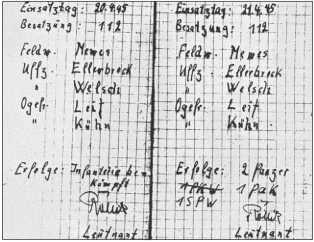 Einsatztag: 20.4.45
Besatzung: 112
Feldw. Nemes
Uffz. Ellerbrock
" Welsch
Ogefr. Leif
" Kühn
Erfolge: Infanterie be
kämpft
Leutnant
Einsatztag: 21.4.45
Besatzung: 112
Feldw. Nemes
Uffz. Ellerbrock
" Welsch
Ogefr. Leif
" Kühn
Erfolge: 2 Panzer
1 PKW 1 Pak
1 SPW
Leutnant